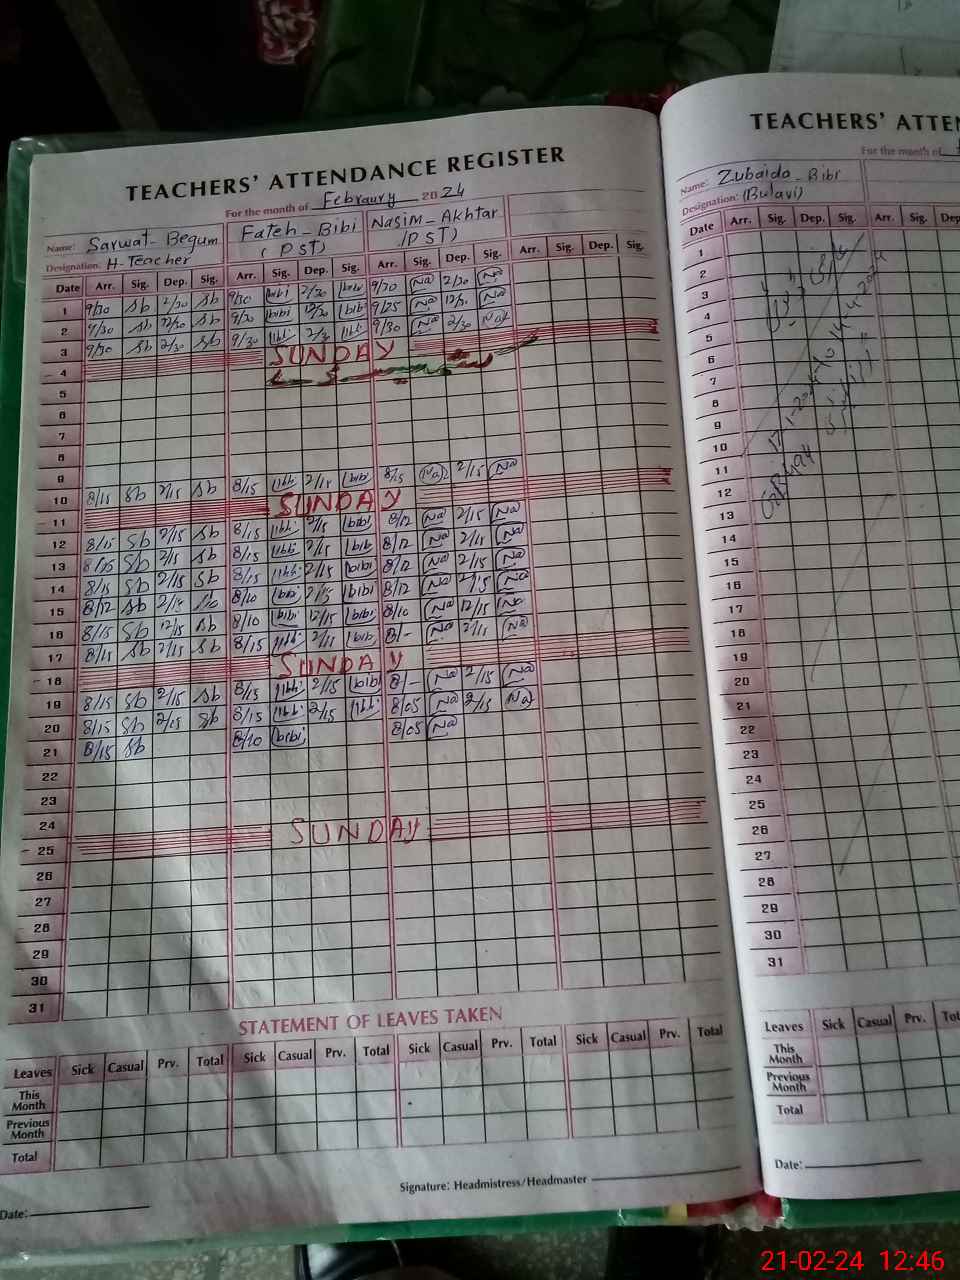 TEACHERS' ATTENDANCE REGISTER
For the month of Febraury 2024
Name: Sarwat-Begum Fateh-Bibi Nasim-Akhtar
Designation: H-Teacher (PST) (PST)
Date Arr. Sig. Dep. Sig. Arr. Sig. Dep. Sig. Arr. Sig. Dep. Sig. Arr. Sig. Dep. Sig.
1 9/30 Sb 2/30 Sb 9/30 bibi 2/30 bibi 9/30 Na 2/30 Na
2 9/30 Sb 12/30 Sb 9/30 bibi 12/30 bibi 9/25 Na 12/30 Na
3 9/30 Sb 2/30 Sb 9/30 bibi 2/30 bibi 9/30 Na 2/30 Na
4 SUNDAY
5
6
7
8
9
10 8/15 Sb 2/15 Sb 8/15 bibi 2/15 bibi 8/15 Na 2/15 Na
11 SUNDAY
12 8/15 Sb 2/15 Sb 8/15 bibi 2/15 bibi 8/12 Na 2/15 Na
13 8/15 Sb 2/15 Sb 8/15 bibi 2/15 bibi 8/12 Na 2/15 Na
14 8/15 Sb 2/15 Sb 8/15 bibi 2/15 bibi 8/12 Na 2/15 Na
15 8/12 Sb 2/15 Sb 8/10 bibi 2/15 bibi 8/12 Na 2/15 Na
16 8/15 Sb 12/15 Sb 8/10 bibi 12/15 bibi 8/10 Na 12/15 Na
17 8/15 Sb 2/15 Sb 8/15 bibi 2/15 bibi 8/- Na 2/15 Na
18 SUNDAY
19 8/15 Sb 2/15 Sb 8/15 bibi 2/15 bibi 8/- Na 2/15 Na
20 8/15 Sb 2/15 Sb 8/15 bibi 2/15 bibi 8/05 Na 2/15 Na
21 8/15 Sb 8/10 bibi 8/05 Na
22
23
24
25 SUNDAY
26
27
28
29
30
31
STATEMENT OF LEAVES TAKEN
Leaves Sick Casual Prv. Total Sick Casual Prv. Total Sick Casual Prv. Total Sick Casual Prv. Total
This Month
Previous Month
Total
Signature: Headmistress/Headmaster
Date:
TEACHERS' ATTEN
For the month of
Name: Zubaida-Bibi
Designation: (Bulavi)
Date Arr. Sig. Dep. Sig. Arr. Sig. Dep
1
2
3
4
5
6
7
8
9
10
11
12
13
14
15
16
17
18
19
20
21
22
23
24
25
26
27
28
29
30
31
Leaves Sick Casual Prv. Tot
This Month
Previous Month
Total
Date:
21-02-24 12:46